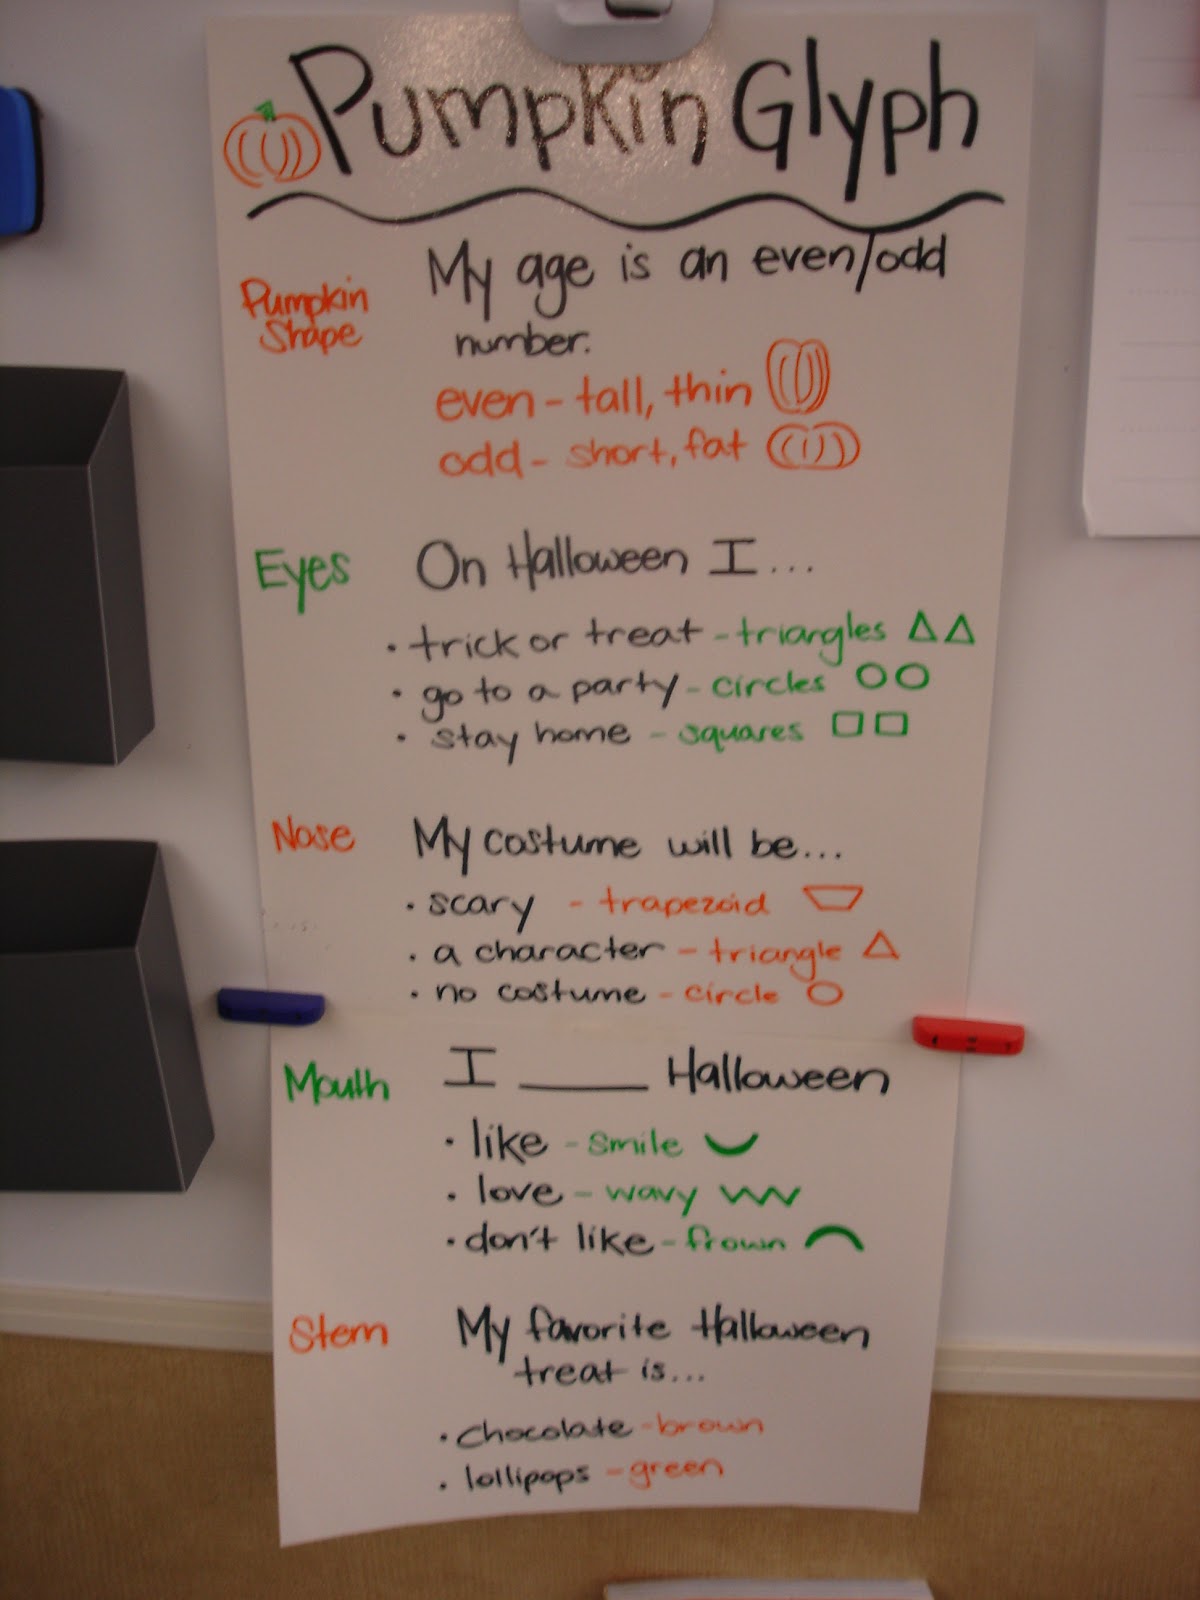 Pumpkin Glyph
Pumpkin
Shape
My age is an even/odd
number.
even - tall, thin
odd - short, fat
Eyes
On Halloween I...
• trick or treat - triangles
• go to a party - circles
• stay home - squares
Nose
My costume will be...
• scary - trapezoid
• a character - triangle
• no costume - circle
Mouth
I ____ Halloween
• like - smile
• love - wavy
• don't like - frown
Stem
My favorite Halloween
treat is...
• chocolate - brown
• lollipops - green